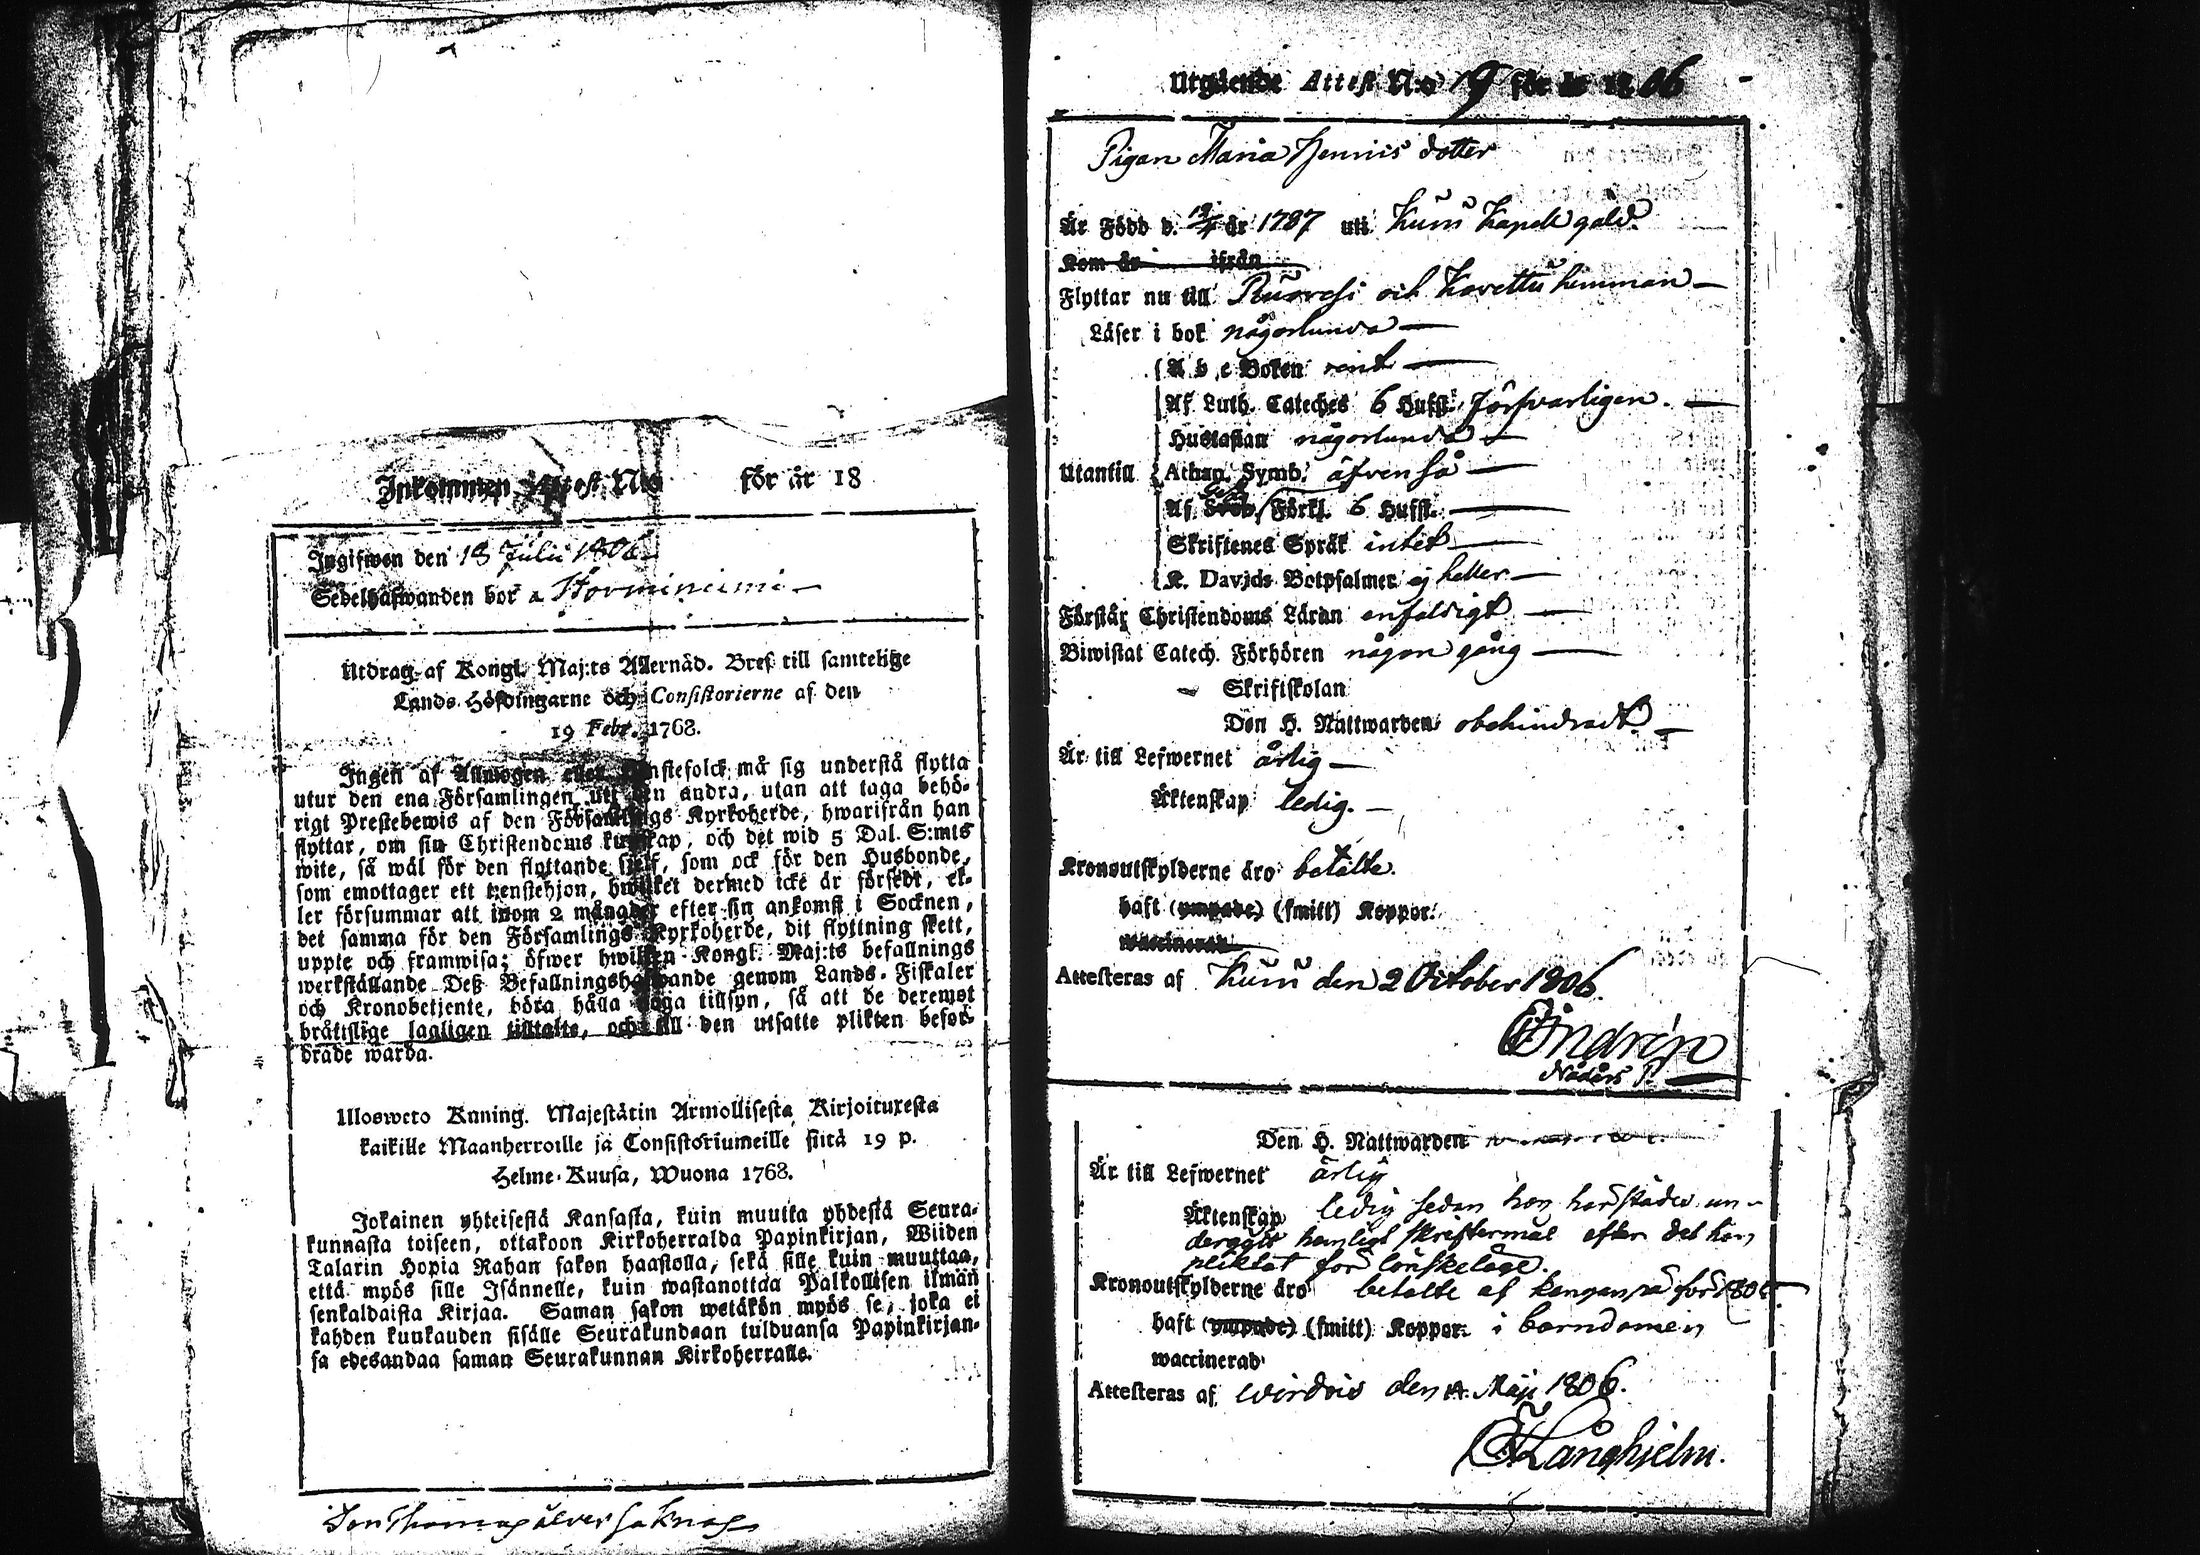 Inkommen Attest N:o för år 18
Ingifwen den 18 Julii 1806
Sedelhafwanden bor a
Utdrag af Kongl. Maj:ts Allernåd. Bref till samtelige
Lands-Höfdingarne och Consistorierne af den
19 Febr. 1768.
Ingen af Allmogen eller tjenstefolck må sig understå flytta
utur den ena Församlingen uti den andra, utan att taga behö-
rigt Prestebewis af den Församlings Kyrkoherde, hwarifrån han
flyttar, om sin Christendoms kunskap, och det wid 5 Dal. S:mts
wite, så wäl för den flyttande sielf, som ock för den Husbonde,
som emottager ett tjenstehjon, hwilket dermed icke är försedt, el-
ler försummar att inom 2 månader efter sin ankomst i Socknen,
det samma för den Församlings Kyrkoherde, dit flyttning skett,
uppte och framwisa; öfwer hwilken Kongl. Maj:ts befallnings
werkställande Deß Befallningshafwande genom Lands-Fiskaler
och Kronobetjente, böra hålla noga tillsyn, så att de deremot
bråttslige lagligen tilltalte, och till den utsatte plikten befor-
drade warda.
Ulosweto Kuning. Majestätin Armollisesta Kirjoituxesta
kaikille Maanherroille ja Consistoriumeille siitä 19 p.
Helme-Kuusa, Wuona 1768.
Jokainen yhteisestä Kansasta, kuin muutta yhdestä Seura-
kunnasta toiseen, ottakoon Kirkoherralda Papinkirjan, Wiiden
Talarin Hopia Rahan sakon haastolla, sekä sille kuin muuttaa,
että myös sille Isännelle, kuin wastanottaa Palkollisen ilman
senkaldaista Kirjaa. Saman sakon wetäkön myös se, joka ei
kahden kuukauden sisälle Seurakundaan tulduansa Papinkirjan-
sa edesandaa saman Seurakunnan Kirkoherralle.
Utgående Attest N:o 19 för år 1806
Pigan Maria Henrics dotter
Är Född d. 12/4 år 1787 uti Kuru Kapell gäld.
Kom år ifrån
Flyttar nu till Ruovesi och Kavettu hemman
Läser i bok någorlunda
A b c Boken rent
Af Luth. Cateches 6 Hufst. försvarligen.
Hustaflan någorlunda
Utantill Athan. Symb. äfven så
Af Förkl. 6 Hufst.
Skriftenes Språk intet
K. Davids Botpsalmer ej heller
Förstår Christendoms Läran enfaldigt
Biwistat Catech. Förhören någon gång
Skriftskolan
Den H. Nattwarden obehindradt.
Är till Lefwernet ärlig
Äktenskap ledig.
Kronoutskylderne äro betalte.
haft (ympade) (smitt) Koppor.
waccinerad
Attesteras af Kuru den 2 October 1806.
Den H. Nattwarden
Är till Lefwernet ärlig
Äktenskap ledig sedan hon härstädes un-
dergått hemligt skriftermål efter det hon
pliktat för lönskeläge.
Kronoutskylderne äro betalte af
haft (ympade) (smitt) Koppor i barndomen
waccinerad
Attesteras af Wirdois den Maji 1806.
Långhjelm.